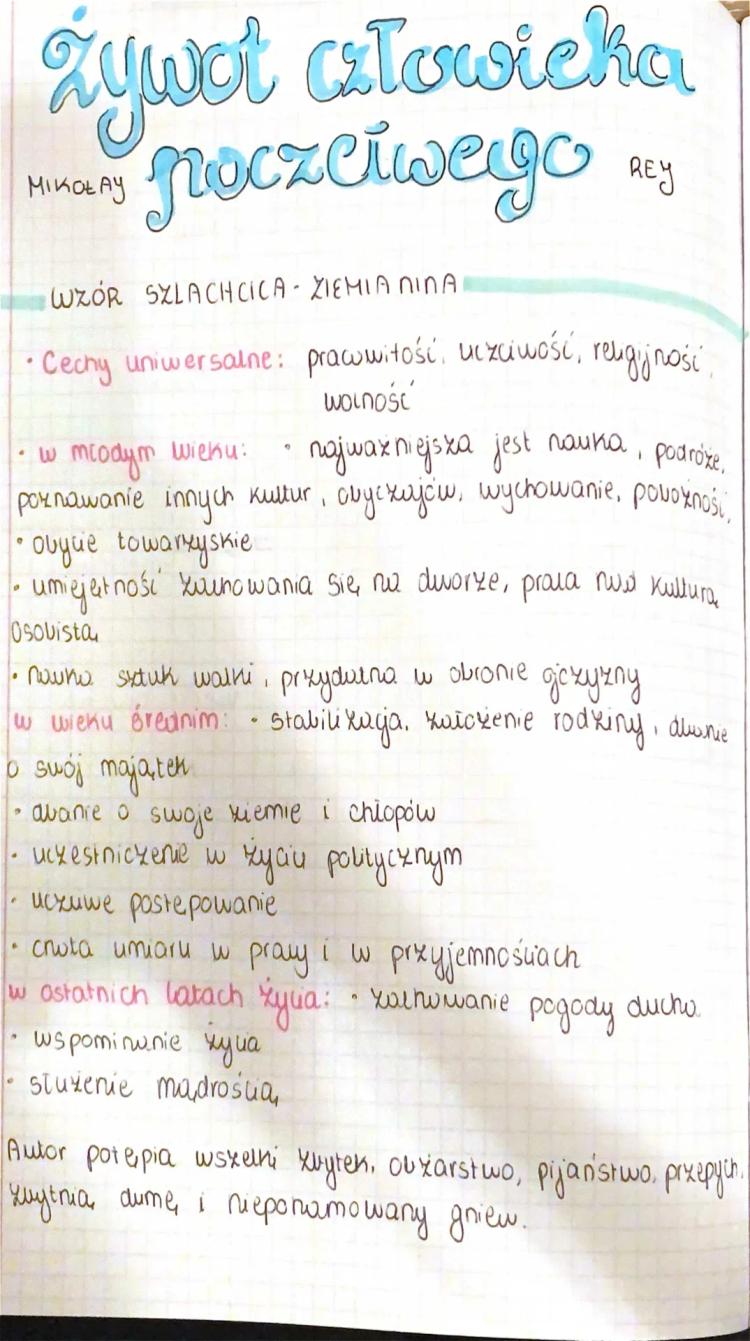 Żywot człowieka
poczciwego
MIKOŁAY REY
WZÓR SZLACHCICA - ZIEMIANINA
• Cechy uniwersalne: pracowitość, uczciwość, religijność,
wolność
• w młodym wieku: • najważniejsza jest nauka, podróże,
poznawanie innych kultur, obyczajów, wychowanie, pobożność,
• obycie towarzyskie
• umiejętność zachowania się na dworze, praca nad kulturą
osobistą
• nauka sztuk walki, przydatna w obronie ojczyzny
w wieku średnim: • stabilizacja, założenie rodziny, dbanie
o swój majątek
• dbanie o swoje ziemie i chłopów
• uczestniczenie w życiu politycznym
• uczciwe postępowanie
• cnota umiaru w pracy i w przyjemnościach
w ostatnich latach życia: • zachowanie pogody ducha
• wspominanie życia
• służenie mądrością
Autor potępia wszelki zbytek, obżarstwo, pijaństwo, przepych,
zbytnią dumę i niepohamowany gniew.